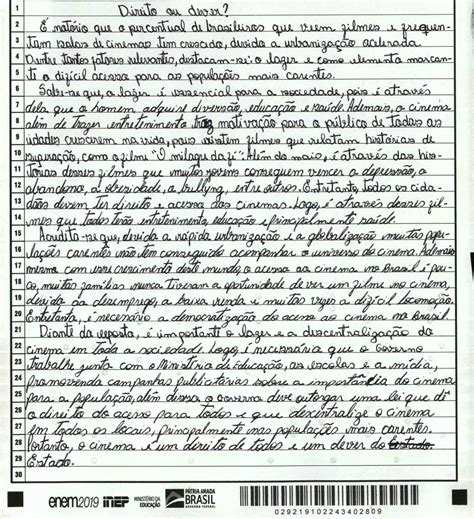 Direito ou dever?
É notório que o percentual de brasileiros que veem filmes e frequen-
tam salas de cinemas tem crescido, devido a urbanização acelerada.
Dentre tantos fatores relevantes, destacam-se: o lazer e como elemento marcan-
te o difícil acesso para as populações mais carentes.
Sabe-se que, a lazer é essencial para a sociedade, pois é através
dela que o homem adquire diversão, educação e saúde. Ademais, o cinema
além de trazer entretenimento traz motivação para o público de todas as
idades crescerem na vida, pois existem filmes que relatam histórias de
superação, como o filme "O milagre da fé". Além do mais, é através das his-
tórias desses filmes que muitos jovens conseguem vencer a depressão, o
abandono, a obesidade, o bullying, entre outros. Entretanto, todos os cida-
dãos devem ter direito e acesso das cinemas. Logo, é através desses fil-
mes que todos terão entretenimento, educação e principalmente saúde.
Acredita-se que, devido a rápida urbanização e a globalização muitas popu-
lações carentes não tem conseguido acompanhar o universo do cinema. Ademais
mesmo com esse crescimento deste mundo, o acesso ao cinema no Brasil é pou-
co, muitas famílias nunca tiveram a oportunidade de ver um filme no cinema,
devido da desemprego, a baixa renda e muitas vezes a difícil locomoção.
Entretanto, é necessário a democratização do acesso ao cinema no Brasil
Diante do exposto, é importante o lazer e a descentralização do
cinema em toda a sociedade. Logo, é necessário que o Governo
trabalhe junto com o Ministério da Educação, as escolas e a mídia,
promovendo campanhas publicitárias sobre a importância do cinema
para a população, além disso o governo deve outorgar uma lei que dê
o direito do acesso para todos e que descentralize o cinema
em todos os locais, principalmente nas populações mais carentes.
Portanto, o cinema é um direito de todos e um dever do
Estado.
enem2019 inep MINISTÉRIO DA EDUCAÇÃO PÁTRIA AMADA BRASIL GOVERNO FEDERAL
0292191022434028​09